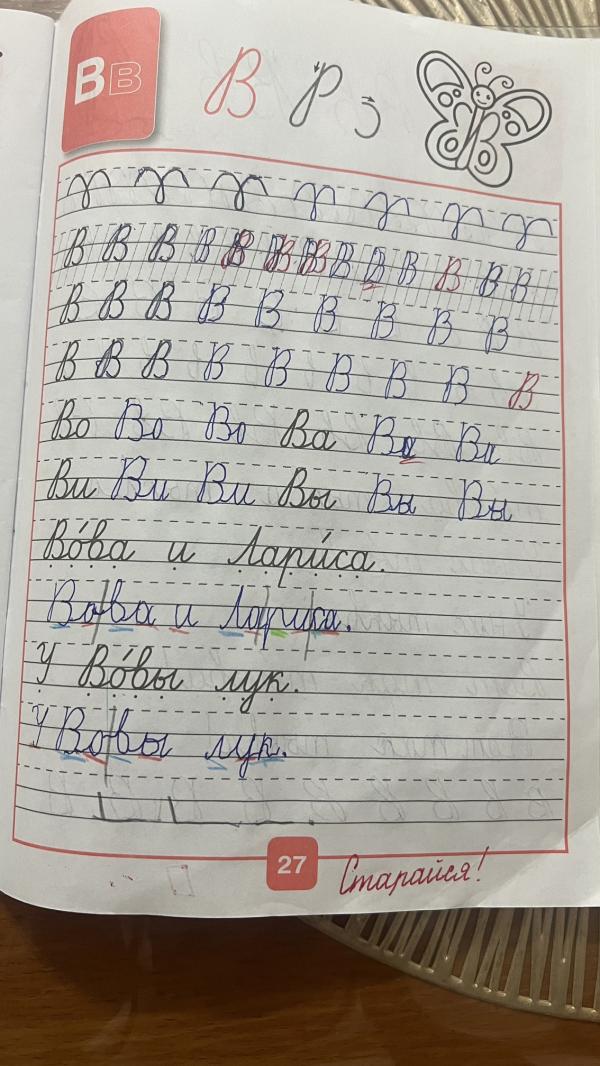 В В В Р
В В В В В В В В В В В В В
В В В В В В В В В
В В В В В В В В В
Во Во Во Ва Ва Ва
Ви Ви Ви Вы Вы Вы
Во́ва и Лари́са.
Вова и Лариса.
У Во́вы лук.
У Вовы лук.
27 Старайся!